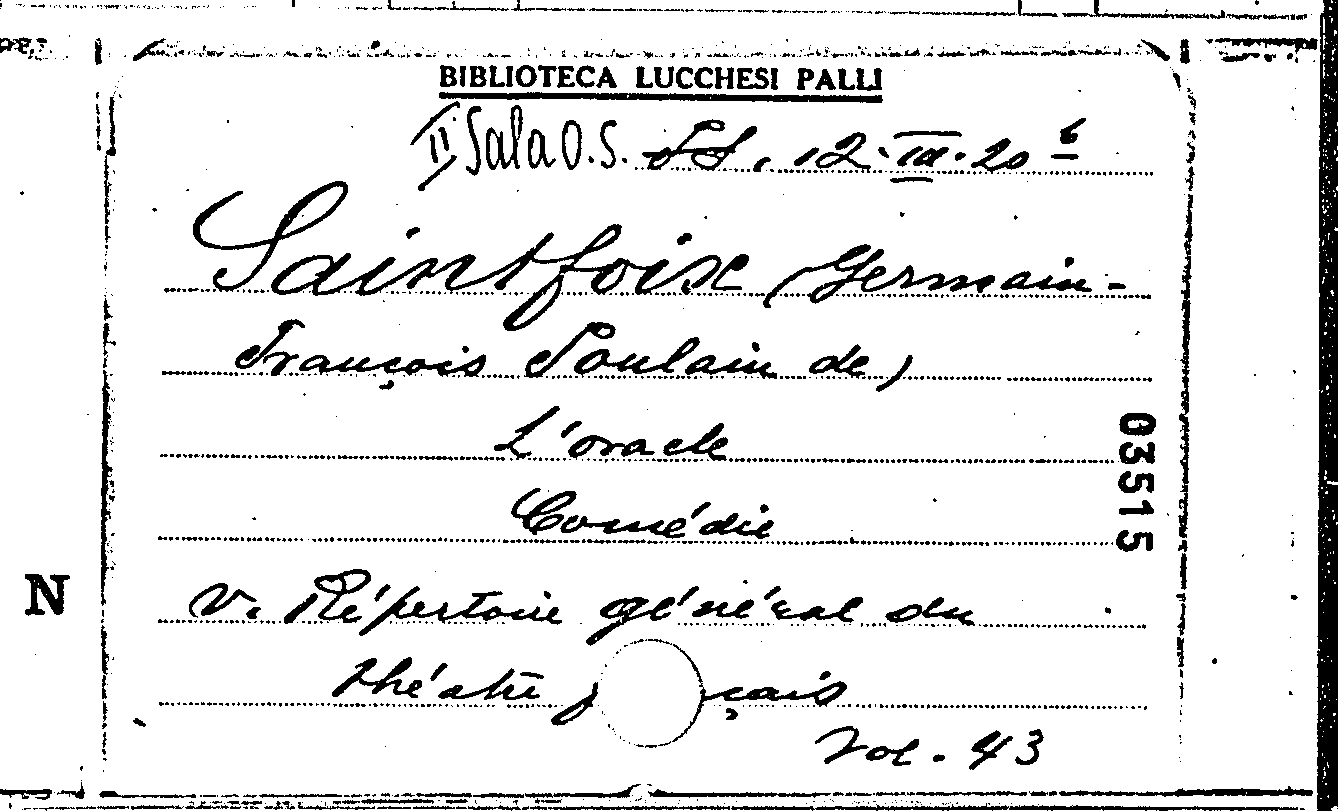 BIBLIOTECA LUCCHESI PALLI
II Sala O.S. 12. IX. 20 6
Saintfoix (Germain-
François Poulain de)
L'oracle
Comédie
03515
N
v. Répertoire général du
théatre f çais
Vol. 43